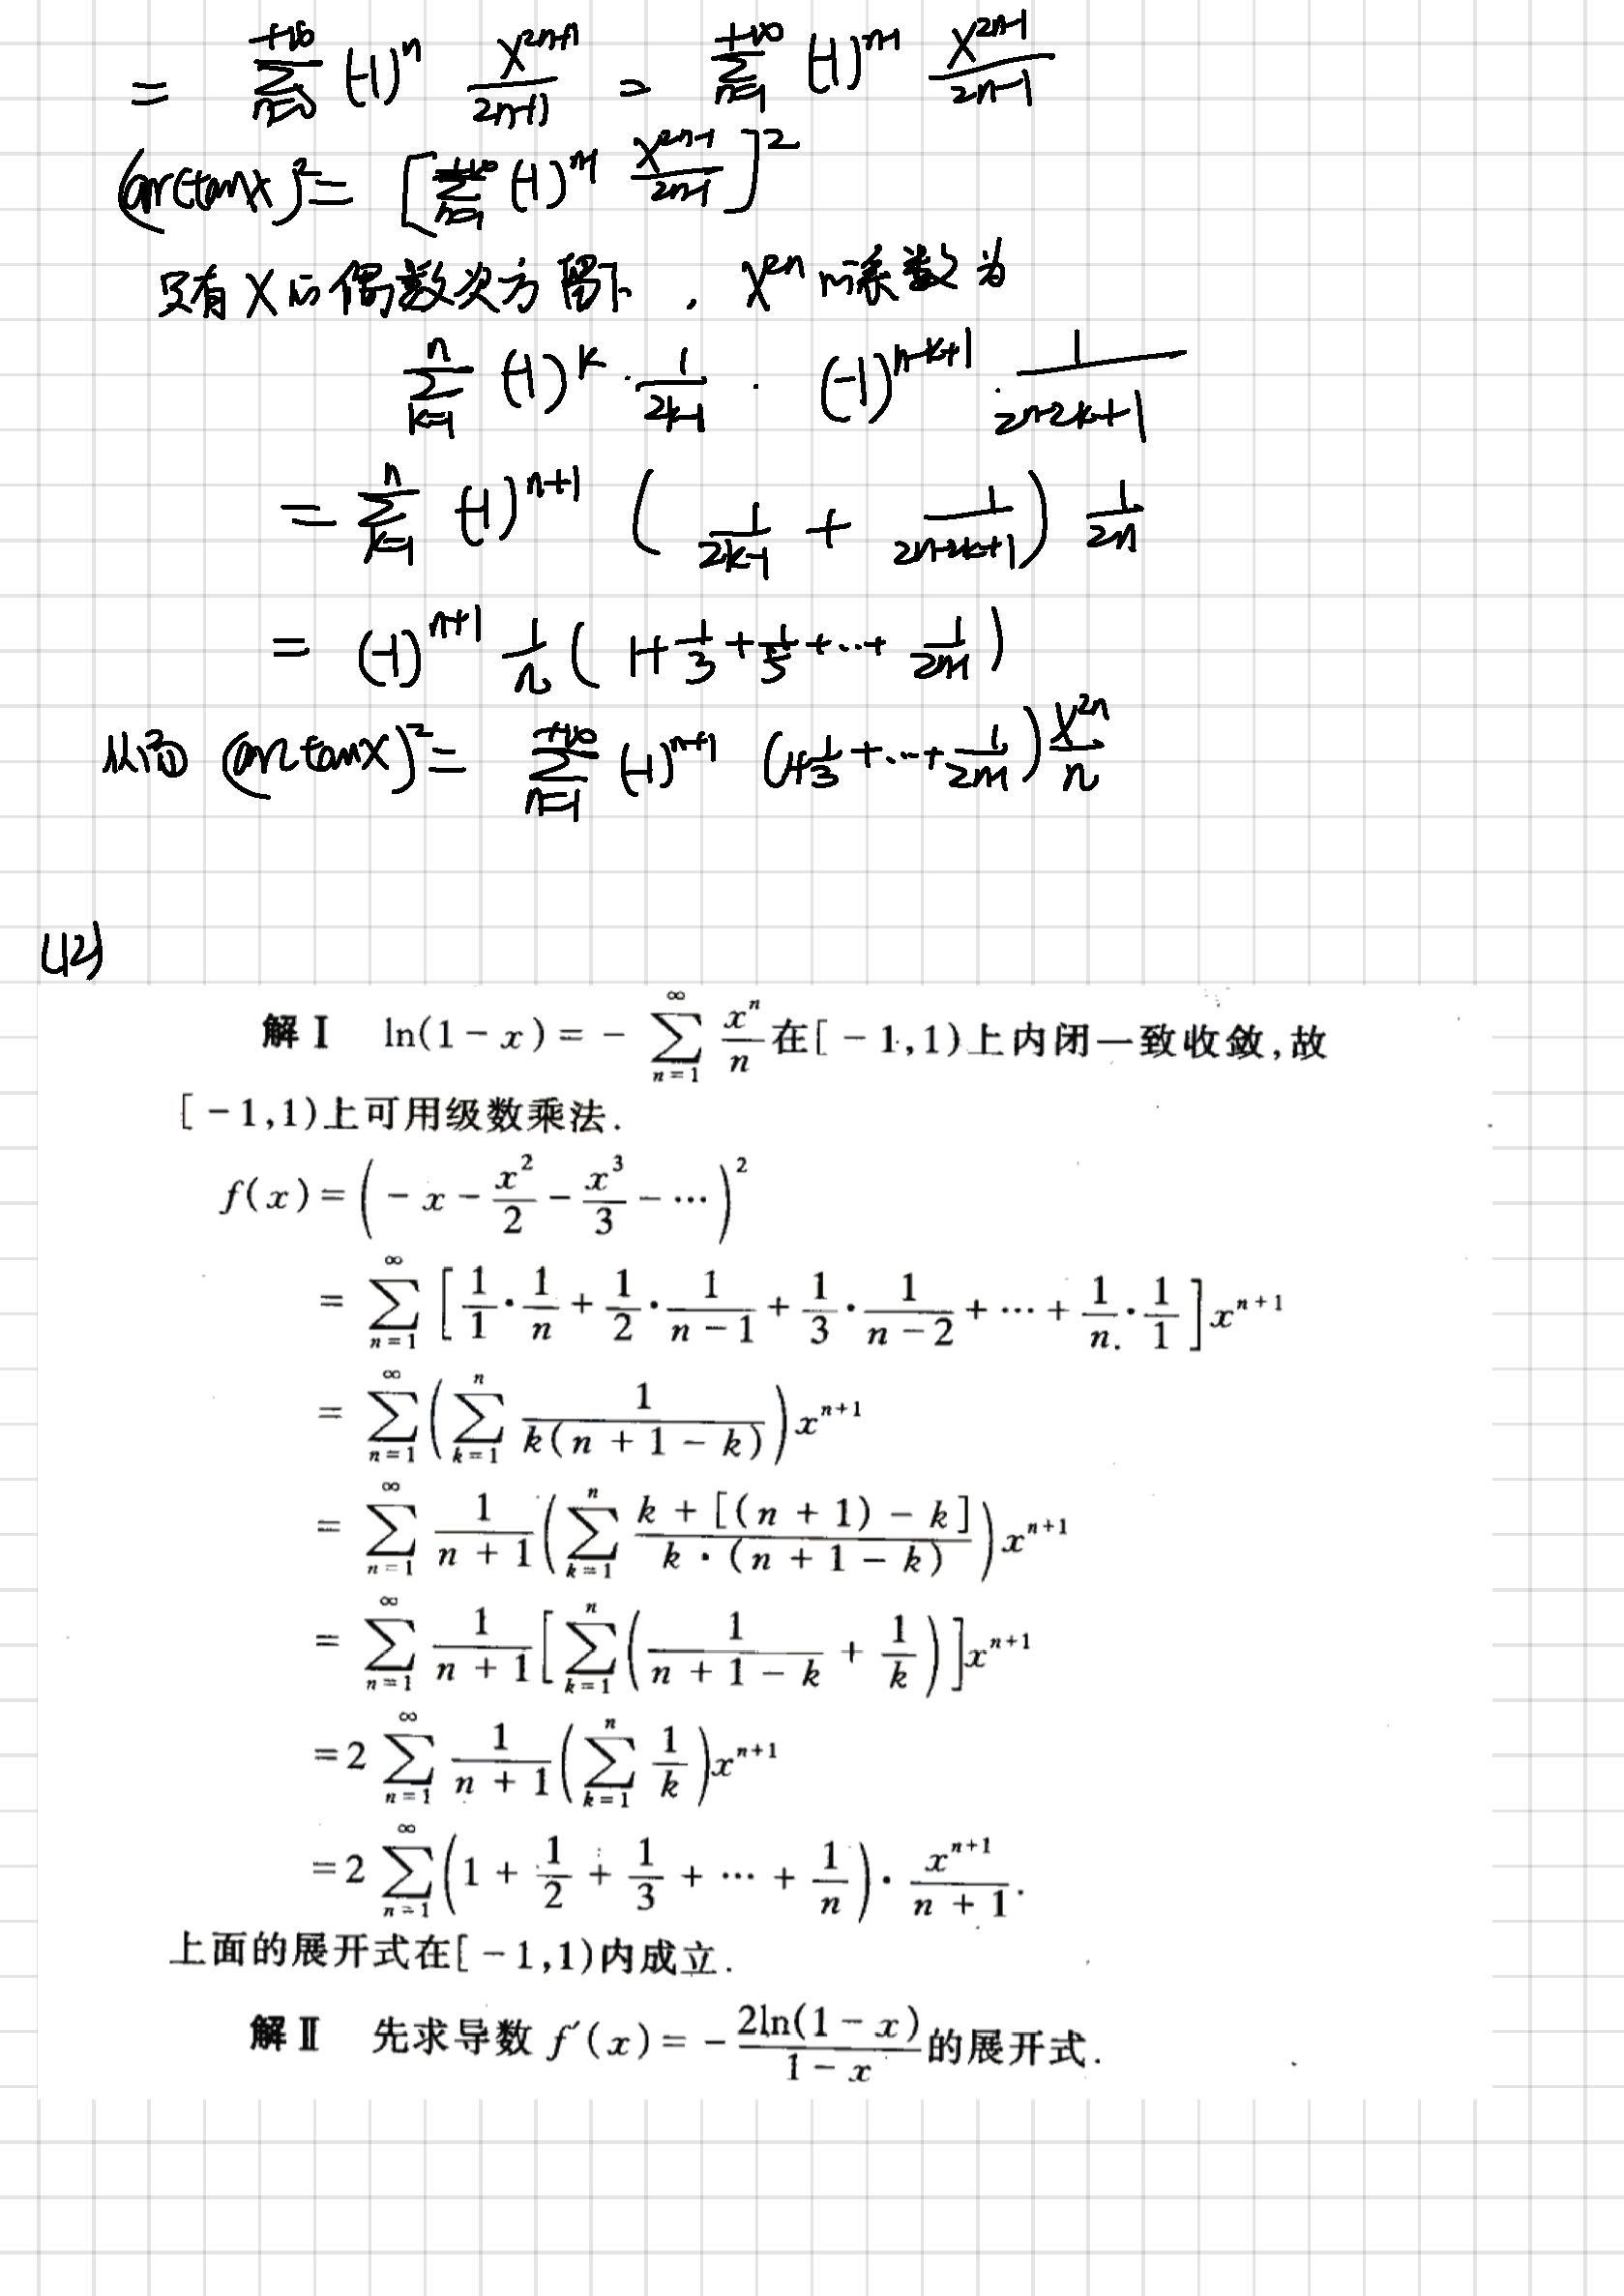 = \sum_{n=0}^{+\infty} (-1)^n \frac{x^{2n+1}}{2n+1} = \sum_{n=1}^{+\infty} (-1)^{n-1} \frac{x^{2n-1}}{2n-1}
(arctanx)^2 = [\sum_{n=1}^{+\infty} (-1)^{n-1} \frac{x^{2n-1}}{2n-1}]^2
只有 x 的偶数次方留下 , x^{2n} 的系数为
\sum_{k=1}^{n} (-1)^k · \frac{1}{2k-1} · (-1)^{n-k+1} · \frac{1}{2n-2k+1}
= \sum_{k=1}^{n} (-1)^{n+1} ( \frac{1}{2k-1} + \frac{1}{2n-2k+1} ) \frac{1}{2n}
= (-1)^{n+1} \frac{1}{n} ( 1 + \frac{1}{3} + \frac{1}{5} + ... + \frac{1}{2n-1} )
从而 (arctanx)^2 = \sum_{n=1}^{+\infty} (-1)^{n+1} (1 + \frac{1}{3} + ... + \frac{1}{2n-1}) \frac{x^{2n}}{n}
(12)
解 I ln(1 - x) = - \sum_{n=1}^{∞} \frac{x^n}{n} 在[ - 1,1)上内闭一致收敛,故
[ - 1,1)上可用级数乘法.
f(x) = ( - x - \frac{x^2}{2} - \frac{x^3}{3} - … )^2
= \sum_{n=1}^{∞} [ \frac{1}{1} · \frac{1}{n} + \frac{1}{2} · \frac{1}{n-1} + \frac{1}{3} · \frac{1}{n-2} + … + \frac{1}{n} · \frac{1}{1} ] x^{n+1}
= \sum_{n=1}^{∞} ( \sum_{k=1}^{n} \frac{1}{k(n+1-k)} ) x^{n+1}
= \sum_{n=1}^{∞} \frac{1}{n+1} ( \sum_{k=1}^{n} \frac{k+[(n+1)-k]}{k·(n+1-k)} ) x^{n+1}
= \sum_{n=1}^{∞} \frac{1}{n+1} [ \sum_{k=1}^{n} ( \frac{1}{n+1-k} + \frac{1}{k} ) ] x^{n+1}
= 2 \sum_{n=1}^{∞} \frac{1}{n+1} ( \sum_{k=1}^{n} \frac{1}{k} ) x^{n+1}
= 2 \sum_{n=1}^{∞} ( 1 + \frac{1}{2} + \frac{1}{3} + … + \frac{1}{n} ) · \frac{x^{n+1}}{n+1}.
上面的展开式在[ - 1,1)内成立.
解 II 先求导数 f′(x) = - \frac{2ln(1-x)}{1-x} 的展开式.